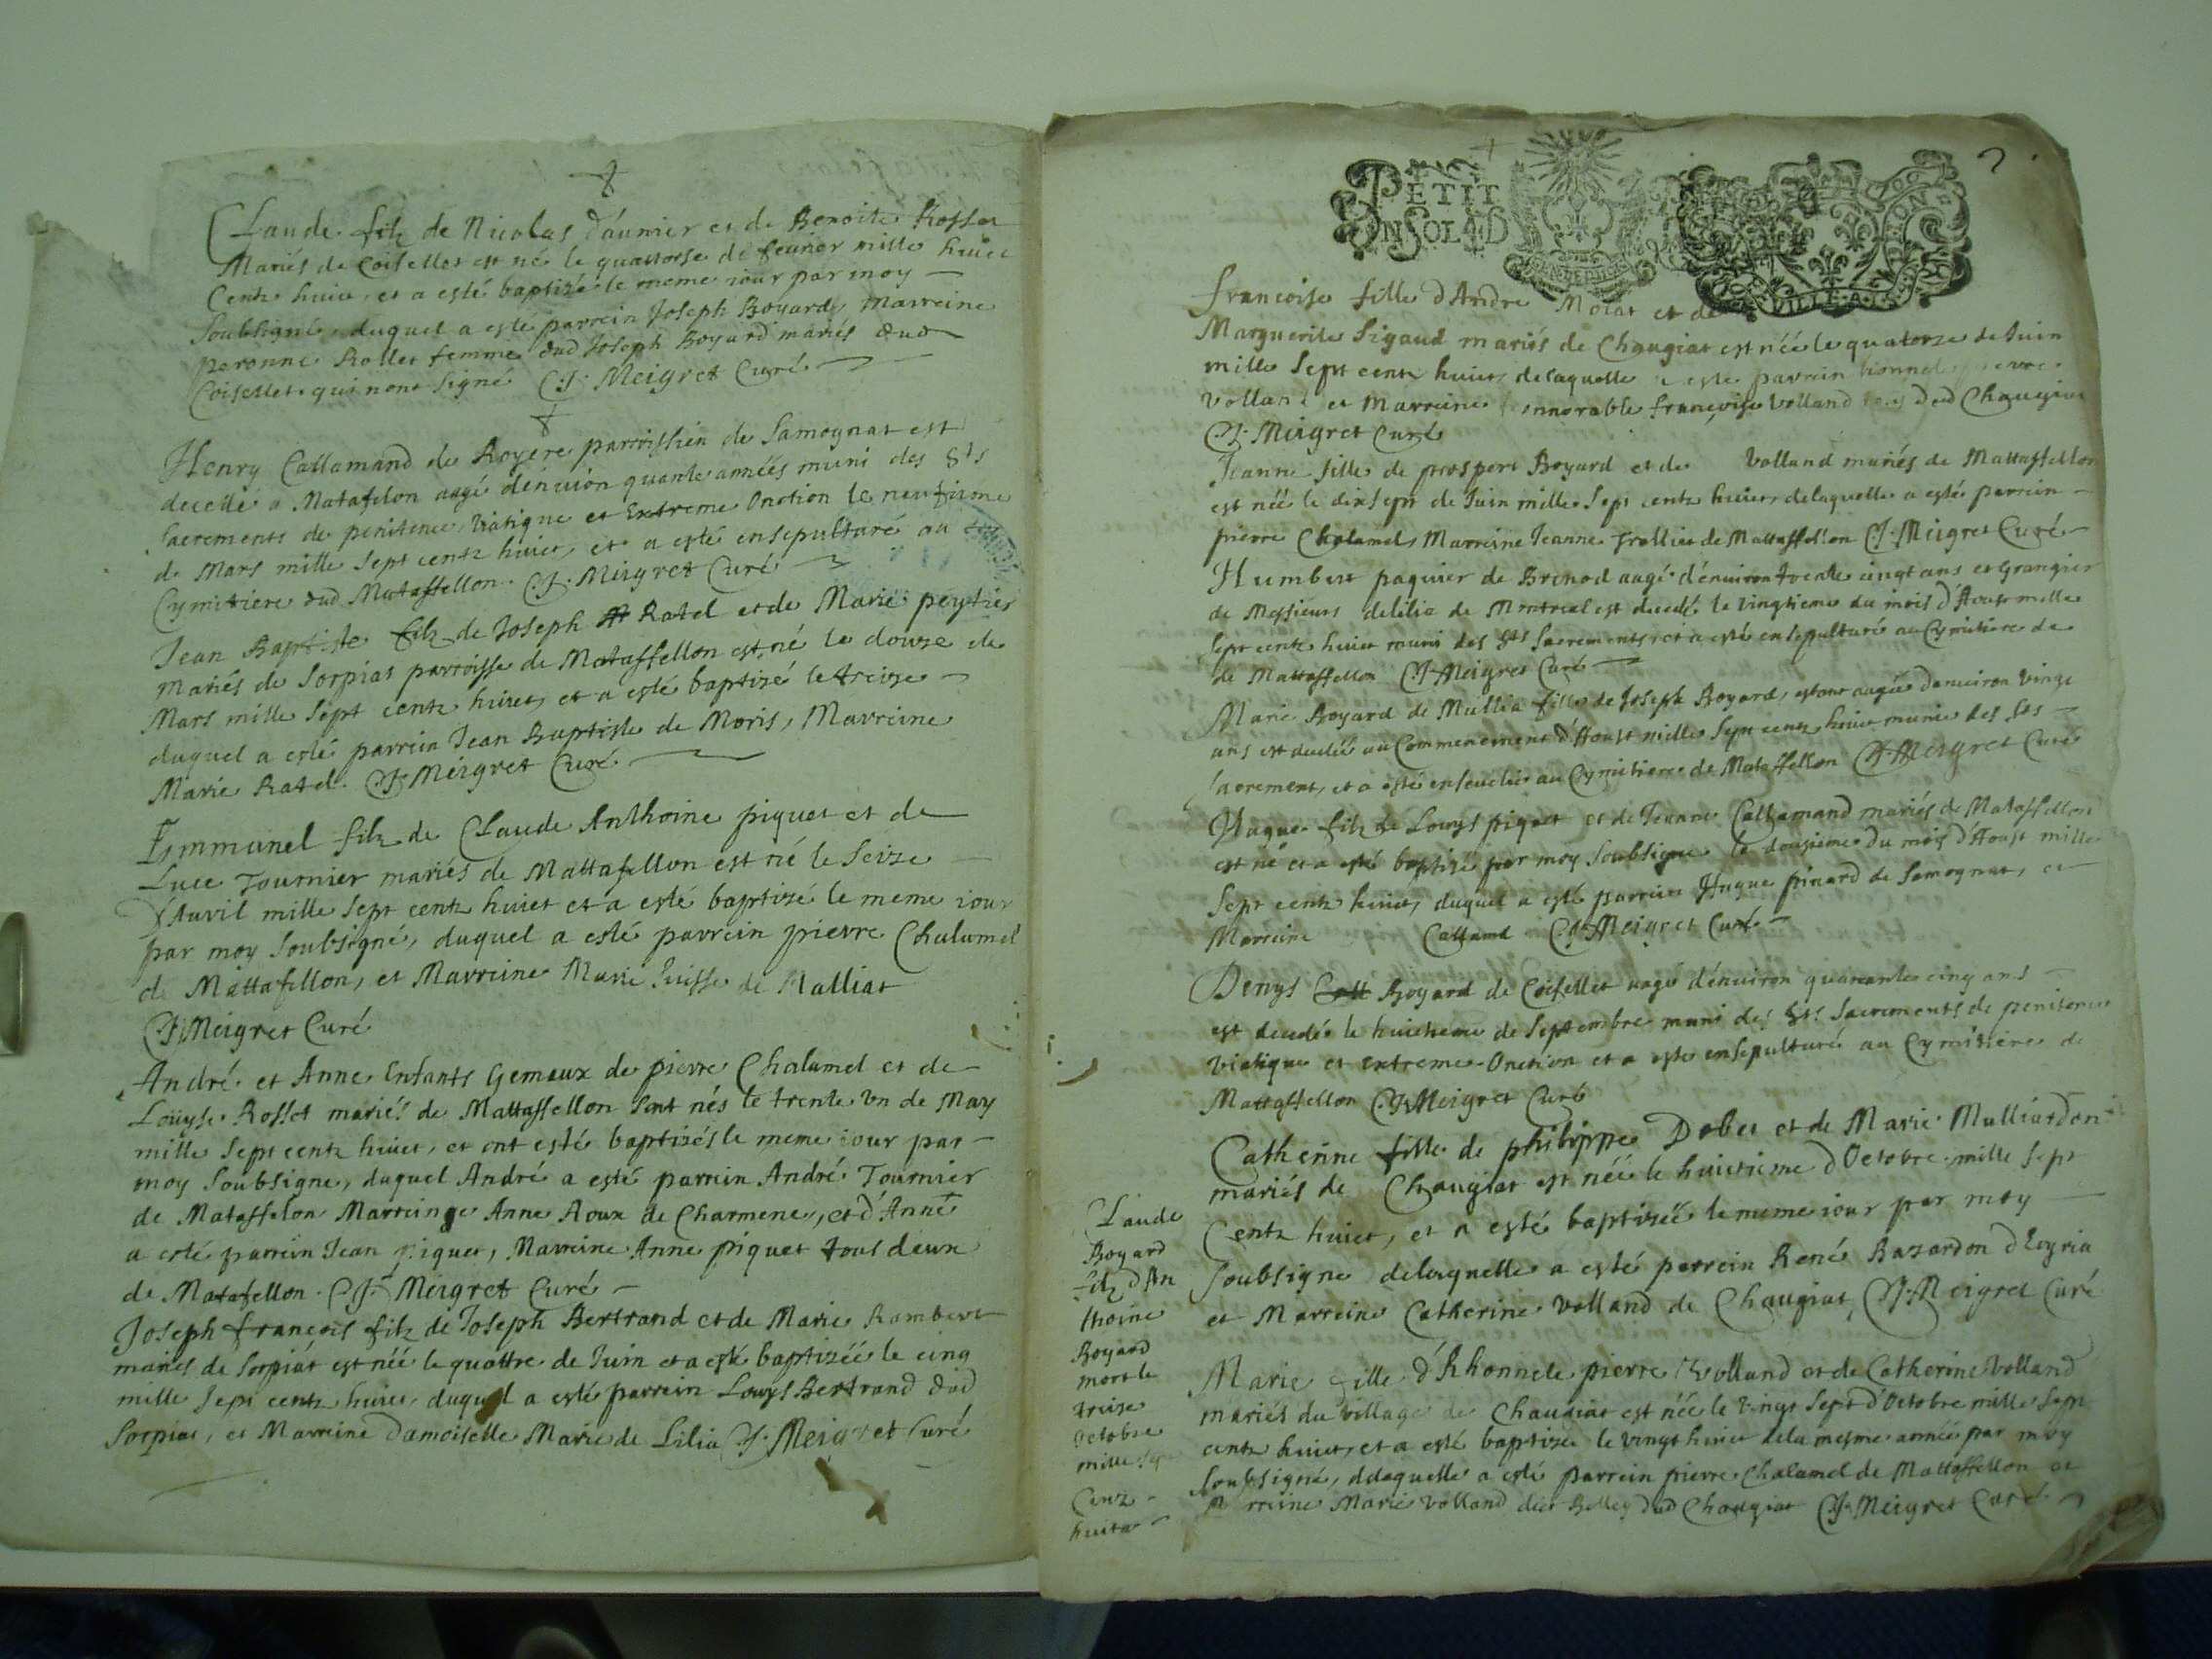 Claude filz de Nicolas Daunier et de Benoite Rosset
Mariés de Coisellet est né le quattorse de feurier mille huict
Centz huict, et a esté baptizé le meme iour par moy
Soubsigné, duquel a esté parrein Joseph Boyard, Marreine
peronne Rollet femme dud Joseph Boyard mariés dud
Coisellet qui nont Signé CJ. Meigret Curé
Henry Callamand de Royere parroissien de Samognat est
decedé a Matafelon aagé dénuiron quante années muni des Sts
Sacrements de penitence, Viatique et Extreme Onction le neufieme
de Mars mille Sept centz huict, et a esté ensepulturé au
Cymitiere dud Mataffellon. CJ. Meigret Curé
Jean Baptiste filz de Joseph Ratel et de Marie peytier
mariés de Sorpiat parroisse de Mataffellon est né le douze de
Mars mille Sept centz huict, et a esté baptizé le treize
duquel a esté parrein Jean Baptiste de Moris, Marreine
Marie Ratel. CJ. Meigret Curé
Emmanel filz de Claude Anthoine piquet et de
Luce Tournier mariés de Mattafellon est né le Seize
D'Auvil mille Sept centz huict et a esté baptizé le meme iour
par moy Soubsigné, duquel a esté parrein pierre Chalumel
de Mattafellon, et Marreine Marie Suisse de Malliat
CJ. Meigret Curé
André et Anne Enfants Gemeux de pierre Chalumel et de
Louyse Rosset mariés de Mattaffellon Sont nés le trente vn de May
mille Sept centz huict, et ont esté baptizés le meme iour par
moy Soubsigne, duquel André a esté parrein André Tournier
de Mataffelon Marreinge Anne Roux de Charmene, et d'Anne
a esté parrein Jean piquet, Marreine Anne piquet tous deux
de Matafellon. CJ. Meigret Curé
Joseph françois filz de Joseph Bertrand et de Marie Rambert
mariés de Sorpiat est née le quattre de Juin et a esté baptizéé le cinq
mille Sept centz huict, duquel a esté parrein Louys Bertrand dud
Sorpiat, et Marreine Damoiselle Marie de Lilia CJ. Meigret Curé
2
PETIT
EN SOL 4 D
francoise fille d'Andre Molat et de
Marguerite Sigaud mariés de Chaugiat est néé le quatorze de Juin
mille Sept centz huict, de laquelle a esté parrein
Volland et Marreine honnorable françoise Volland dud Chaugiat
CJ. Meigret Curé
Jeanne fille de prosper Boyard et de Volland mariés de Mattaffellon
est néé le dix Sept de Juin mille Sept centz huict, de laquelle a esté parrein
pierre Chalamel, Marreine Jeanne Trolliet de Mattaffellon CJ. Meigret Curé
Humbert paquier de Brenod aagé dénuiron trente cinqt ans et Grangier
de Messieurs delilia de Montreal est decedé le Vingtieme du mois d'Aoust mille
Sept centz huict muni des Sts Sacrements, et a esté ensepulturé au Cymitiere de
de Mattaffellon CJ. Meigret Curé
Marie Boyard de Mullia fille de Joseph Boyard, estant aagée denuiron Vingt
ans est decedéé au Commencement d'Aoust mille Sept centz huict munie des Sts
Sacrement, et a esté enseuelie au Cymitierre de Mataffellon CJ. Meigret Curé
Hugue filz de Louys piquet et de Jeanne Callamand mariés de Mataffellon
est né et a esté baptizé par moy Soubsigne le dousieme du mois d'Aoust mille
Sept centz huict, duquel a esté parrein Hugue pinard de Samognat, et
Marreine Callamd CJ. Meigret Curé
Denys Boyard de Coisellet aagé dénuiron quarante cinq ans
est decedés le huictieme de Septembre muni des Sts Sacrements de penitence
Viatique et extreme Onction et a esté ensepulturé au Cymitiere de
Mattaffellon CJ. Meigret Curé
Catherine fille de philippe Dobet et de Marie Mulliardon
mariés de Chaugiat est néé le huictieme d'Octobre mille Sept
Centz huict, et a esté baptizéé le meme iour par moy
Soubsigne de laquelle a esté parrein René Bazardon d'Eyria
et Marreine Catherine Volland de Chaugiat, CJ. Meigret Curé
Claude
Boyard
filz d'An
thoine
Boyard
mort le
treize
Octobre
mille Sept
Centz
huict
Marie fille d'hhonnete pierre Volland et de Catherine Volland
mariés du Village de Chaugiat est néé le Vingt Sept d'Octobre mille Sept
centz huict, et a esté baptizée le Vingt huict de la mesme année par moy
Soubsigné, de laquelle a esté parrein pierre Chalamel de Mattaffellon et
Marreine Marie Volland dud Chaugiat CJ. Meigret Curé